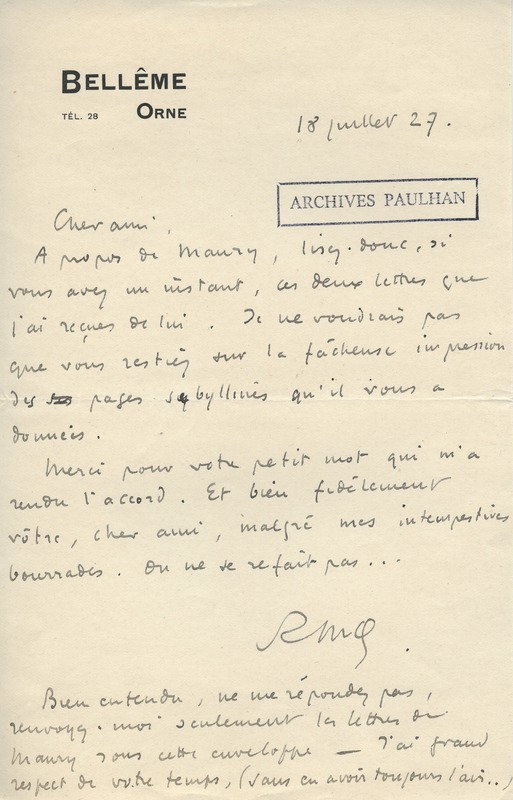 BELLÊME
TÉL. 28 ORNE
18 juillet 27.
ARCHIVES PAULHAN
Cher ami,
A propos de Maury, lisez-donc, si
vous avez un instant, ces deux lettres que
j'ai reçues de lui. Je ne voudrais pas
que vous restiez sur la fâcheuse impression
des pages sybyllines qu'il vous a
données.
Merci pour votre petit mot qui m'a
rendu l'accord. Et bien fidèlement
vôtre, cher ami, malgré mes intempestives
bourrades. On ne se refait pas...
RMG.
Bien entendu, ne me répondez pas,
renvoyez-moi seulement les lettres de
Maury sous cette enveloppe — J'ai grand
respect de votre temps, (sans en avoir toujours l'air..)